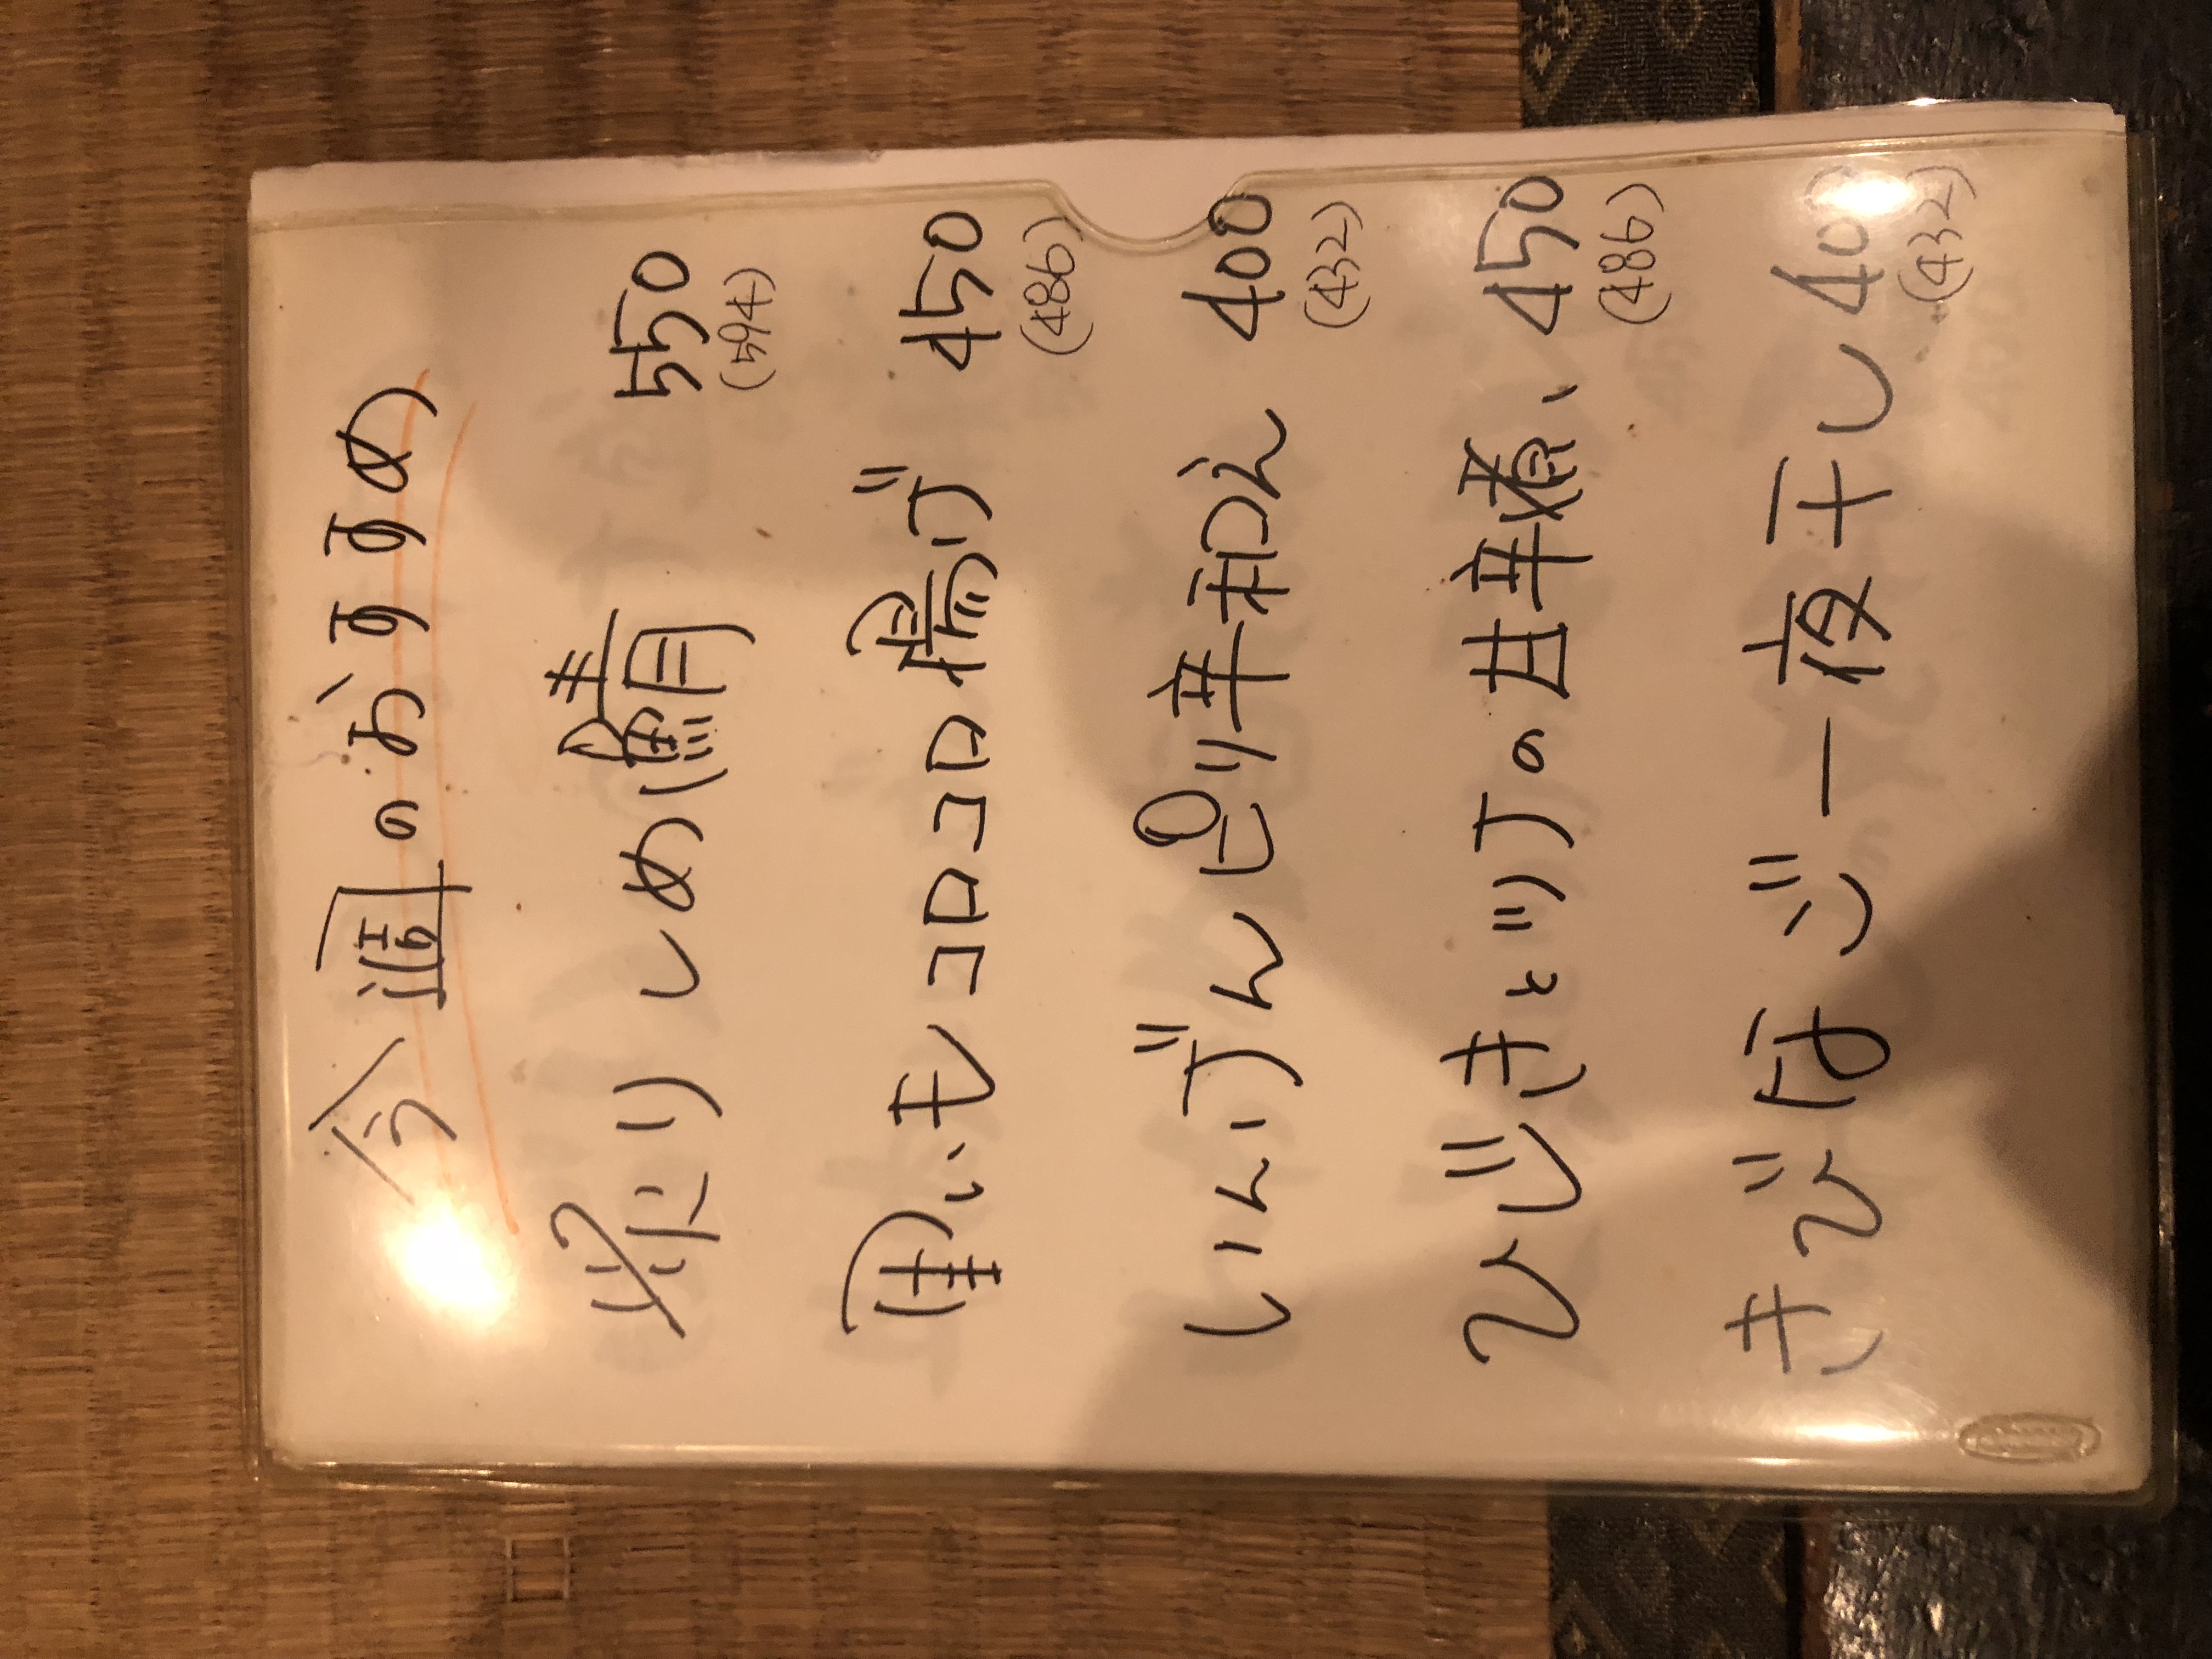 今週のおすすめ
炙りしめ鯖 550
(594)
里いもコロコロ揚げ 450
(486)
いんげんピリ辛和え 400
(432)
ひじきとツナの甘辛煮 450
(486)
きびなご一夜干し 400
(432)